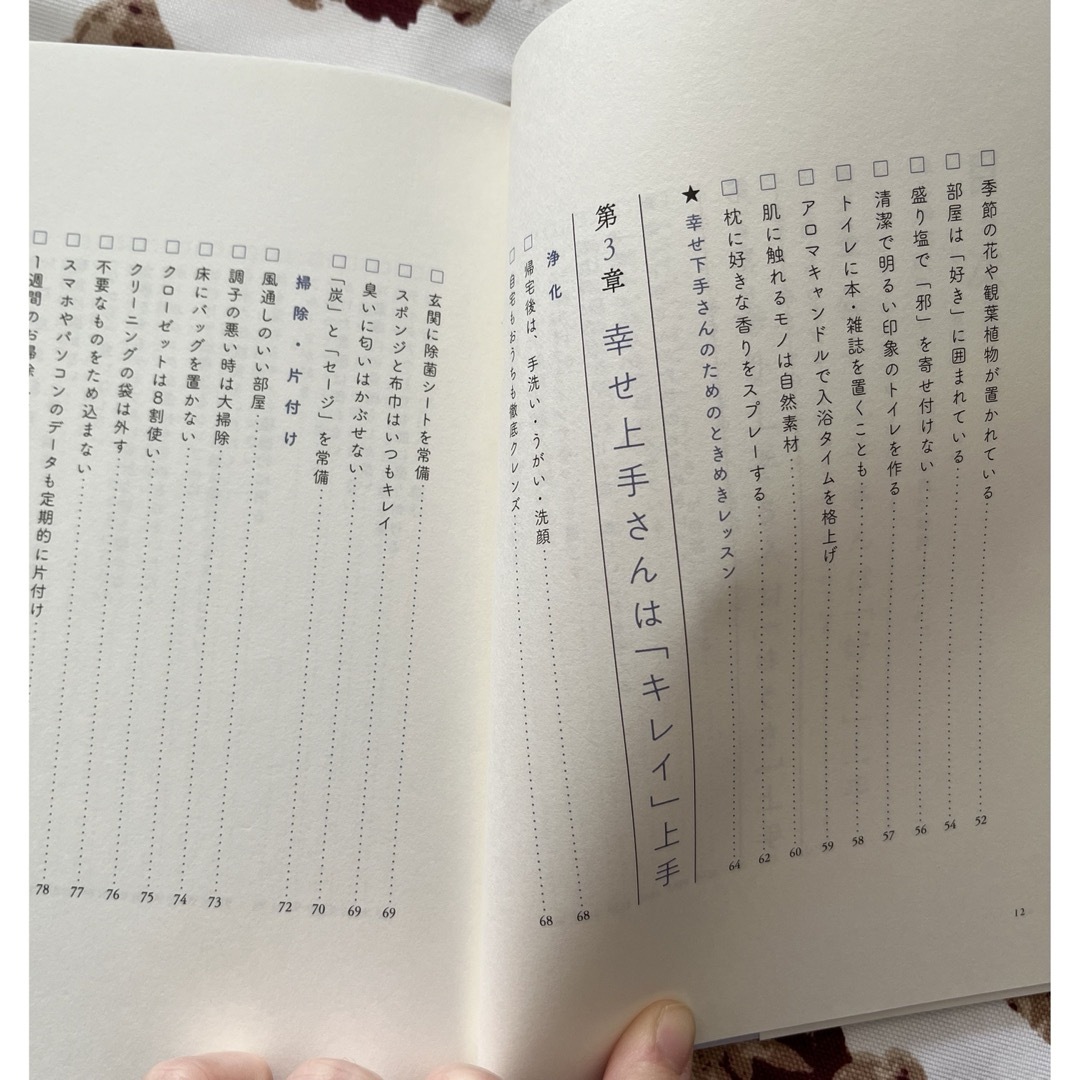 □ 季節の花や観葉植物が置かれている 52
□ 部屋は「好き」に囲まれている 54
□ 盛り塩で「邪」を寄せ付けない 56
□ 清潔で明るい印象のトイレを作る 57
□ トイレに本・雑誌を置くことも 58
□ アロマキャンドルで入浴タイムを格上げ 59
□ 肌に触れるモノは自然素材 60
□ 枕に好きな香りをスプレーする 62
★ 幸せ下手さんのためのときめきレッスン 64
第3章 幸せ上手さんは「キレイ」上手
浄化
□ 帰宅後は、手洗い・うがい・洗顔 68
□ 自分もおうちも徹底クレンズ 68
12
□ 玄関に除菌シートを常備 69
□ スポンジと布巾はいつもキレイ 69
□ 臭いに匂いはかぶせない 70
□ 「炭」と「セージ」を常備 72
掃除・片付け
□ 風通しのいい部屋 73
□ 調子の悪い時は大掃除 74
□ 床にバッグを置かない 75
□ クローゼットは8割使い 76
□ クリーニングの袋は外す 77
□ 不要なものをため込まない 78
□ スマホやパソコンのデータも定期的に片付け
□ 1週間のお掃除